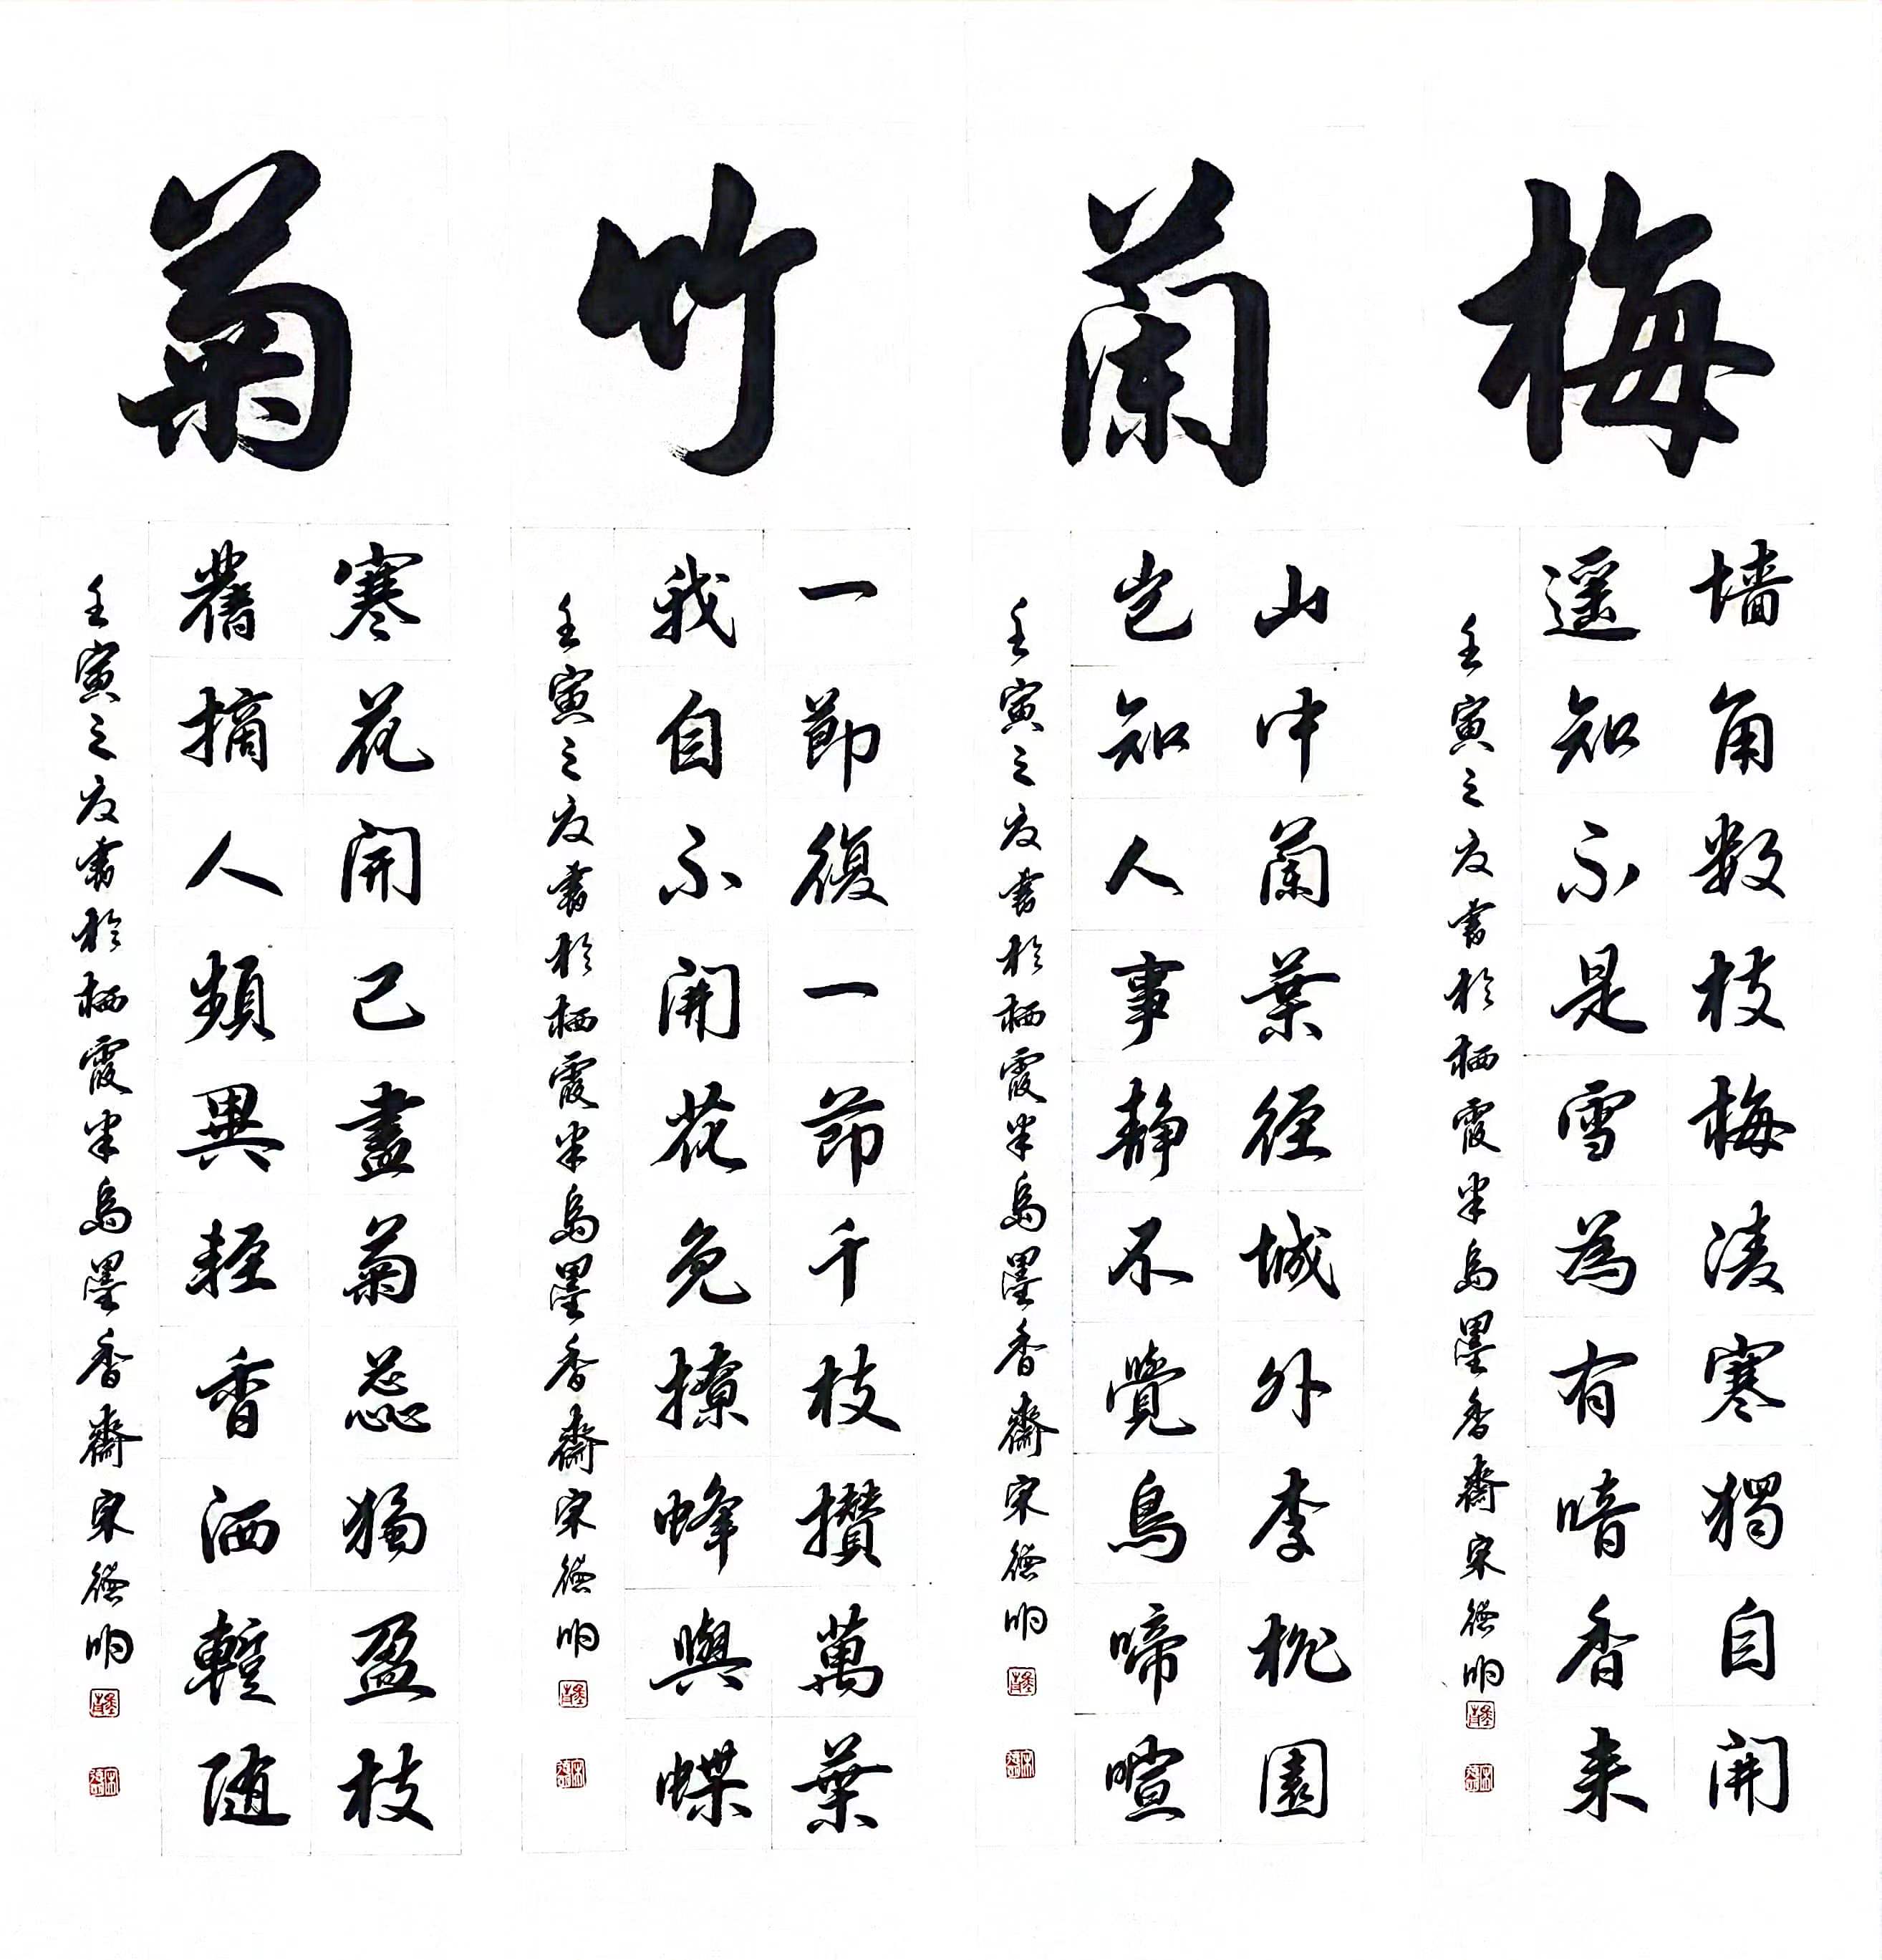 梅
墙角数枝梅凌寒獨自開
遥知不是雪為有暗香来
壬寅之夏書於栖霞半島墨香齋宋德明
蘭
山中蘭葉径城外李桃園
岂知人事静不覺鳥啼喧
壬寅之夏書於栖霞半島墨香齋宋德明
竹
一節復一節千枝攢萬葉
我自不開花免撩蜂與蝶
壬寅之夏書於栖霞半島墨香齋宋德明
菊
寒花開已盡菊蕊獨盈枝
舊摘人頻異輕香酒暫随
壬寅之夏書於栖霞半島墨香齋宋德明